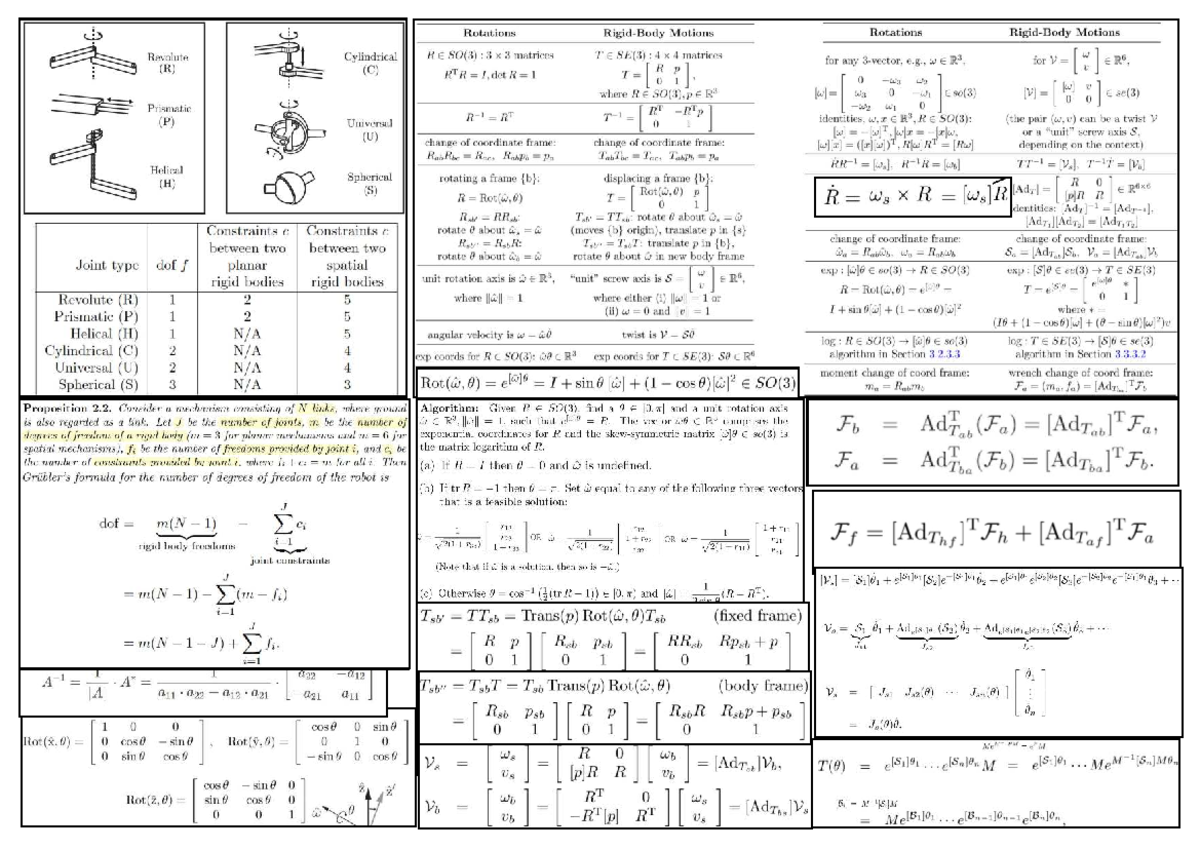 Revolute
(R)
Prismatic
(P)
Helical
(H)
Cylindrical
(C)
Universal
(U)
Spherical
(S)
Joint type | dof f | Constraints c between two planar rigid bodies | Constraints c between two spatial rigid bodies
Revolute (R) 1 2 5
Prismatic (P) 1 2 5
Helical (H) 1 N/A 5
Cylindrical (C) 2 N/A 4
Universal (U) 2 N/A 4
Spherical (S) 3 N/A 3
Proposition 2.2. Consider a mechanism consisting of N links, where ground
is also regarded as a link. Let J be the number of joints, m be the number of
degrees of freedom of a rigid body (m = 3 for planar mechanisms and m = 6 for
spatial mechanisms), f_i be the number of freedoms provided by joint i, and c_i be
the number of constraints provided by joint i, where f_i + c_i = m for all i. Then
Grübler's formula for the number of degrees of freedom of the robot is
dof = m(N − 1) − Σ_{i=1}^{J} c_i
rigid body freedoms
joint constraints
= m(N − 1) − Σ_{i=1}^{J} (m − f_i)
= m(N − 1 − J) + Σ_{i=1}^{J} f_i.
A⁻¹ = 1/|A| · A* = 1/(a₁₁ · a₂₂ − a₁₂ · a₂₁) · [a₂₂ −a₁₂; −a₂₁ a₁₁]
Rot(x̂, θ) = [1 0 0; 0 cos θ −sin θ; 0 sin θ cos θ], Rot(ŷ, θ) = [cos θ 0 sin θ; 0 1 0; −sin θ 0 cos θ]
Rot(ẑ, θ) = [cos θ −sin θ 0; sin θ cos θ 0; 0 0 1]
ω̂ θ ẑ ẑ′
Rotations Rigid-Body Motions
R ∈ SO(3) : 3 × 3 matrices T ∈ SE(3) : 4 × 4 matrices
RᵀR = I, det R = 1 T = [R p; 0 1],
where R ∈ SO(3), p ∈ ℝ³
R⁻¹ = Rᵀ T⁻¹ = [Rᵀ −Rᵀp; 0 1]
change of coordinate frame: change of coordinate frame:
R_ab R_bc = R_ac, R_ab p_b = p_a T_ab T_bc = T_ac, T_ab p_b = p_a
rotating a frame {b}: displacing a frame {b}:
R = Rot(ω̂, θ) T = [Rot(ω̂, θ) p; 0 1]
R_sb′ = RR_sb: T_sb′ = TT_sb: rotate θ about ω̂_s = ω̂
rotate θ about ω̂_s = ω̂ (moves {b} origin), translate p in {s}
R_sb″ = R_sb R: T_sb″ = T_sb T: translate p in {b},
rotate θ about ω̂_b = ω̂ rotate θ about ω̂ in new body frame
unit rotation axis is ω̂ ∈ ℝ³, "unit" screw axis is S = [ω; v] ∈ ℝ⁶,
where ‖ω̂‖ = 1 where either (i) ‖ω‖ = 1 or
(ii) ω = 0 and ‖v‖ = 1
angular velocity is ω = ω̂θ̇ twist is V = Sθ̇
exp coords for R ∈ SO(3): ω̂θ ∈ ℝ³ exp coords for T ∈ SE(3): Sθ ∈ ℝ⁶
Rot(ω̂, θ) = e^{[ω̂]θ} = I + sin θ [ω̂] + (1 − cos θ)[ω̂]² ∈ SO(3)
Algorithm: Given R ∈ SO(3), find a θ ∈ [0, π] and a unit rotation axis
ω̂ ∈ ℝ³, ‖ω̂‖ = 1, such that e^{[ω̂]θ} = R. The vector ω̂θ ∈ ℝ³ comprises the
exponential coordinates for R and the skew-symmetric matrix [ω̂]θ ∈ so(3) is
the matrix logarithm of R.
(a) If R = I then θ = 0 and ω̂ is undefined.
(b) If tr R = −1 then θ = π. Set ω̂ equal to any of the following three vectors
that is a feasible solution:
OR OR
(Note that if ω̂ is a solution, then so is −ω̂.)
(c) Otherwise θ = cos⁻¹ (½(tr R − 1)) ∈ [0, π) and [ω̂] = (R − Rᵀ).
T_sb′ = TT_sb = Trans(p) Rot(ω̂, θ)T_sb (fixed frame)
= [R p; 0 1] [R_sb p_sb; 0 1] = [RR_sb Rp_sb + p; 0 1]
T_sb″ = T_sb T = T_sb Trans(p) Rot(ω̂, θ) (body frame)
= [R_sb p_sb; 0 1] [R p; 0 1] = [R_sb R R_sb p + p_sb; 0 1]
V_s = [ω_s; v_s] = [R 0; [p]R R] [ω_b; v_b] = [Ad_{T_sb}]V_b,
V_b = [ω_b; v_b] = [Rᵀ 0; −Rᵀ[p] Rᵀ] [ω_s; v_s] = [Ad_{T_bs}]V_s
Rotations Rigid-Body Motions
for any 3-vector, e.g., ω ∈ ℝ³, for V = [ω; v] ∈ ℝ⁶,
[ω] = [0 −ω₃ ω₂; ω₃ 0 −ω₁; −ω₂ ω₁ 0] ∈ so(3) [V] = [[ω] v; 0 0] ∈ se(3)
identities, ω, x ∈ ℝ³, R ∈ SO(3): (the pair (ω, v) can be a twist V
[ω] = −[ω]ᵀ, [ω]x = −[x]ω, or a "unit" screw axis S,
[ω][x] = ([x][ω])ᵀ, R[ω]Rᵀ = [Rω] depending on the context)
ṘR⁻¹ = [ω_s], R⁻¹Ṙ = [ω_b] ṪT⁻¹ = [V_s], T⁻¹Ṫ = [V_b]
Ṙ = ω_s × R = [ω_s]R
[Ad_T] = [R 0; [p]R R] ∈ ℝ^{6×6}
identities: [Ad_T]⁻¹ = [Ad_{T⁻¹}],
[Ad_{T₁}][Ad_{T₂}] = [Ad_{T₁T₂}]
change of coordinate frame: change of coordinate frame:
ω̂_a = R_ab ω̂_b, ω_a = R_ab ω_b S_a = [Ad_{T_ab}]S_b, V_a = [Ad_{T_ab}]V_b
exp : [ω̂]θ ∈ so(3) → R ∈ SO(3) exp : [S]θ ∈ se(3) → T ∈ SE(3)
R = Rot(ω̂, θ) = e^{[ω̂]θ} = T = e^{[S]θ} = [e^{[ω]θ} *; 0 1]
I + sin θ[ω̂] + (1 − cos θ)[ω̂]² where * =
(Iθ + (1 − cos θ)[ω] + (θ − sin θ)[ω]²)v
log : R ∈ SO(3) → [ω̂]θ ∈ so(3) log : T ∈ SE(3) → [S]θ ∈ se(3)
algorithm in Section 3.2.3.3 algorithm in Section 3.3.3.2
moment change of coord frame: wrench change of coord frame:
m_a = R_ab m_b F_a = (m_a, f_a) = [Ad_{T_ba}]ᵀF_b
F_b = Adᵀ_{T_ab}(F_a) = [Ad_{T_ab}]ᵀF_a,
F_a = Adᵀ_{T_ba}(F_b) = [Ad_{T_ba}]ᵀF_b.
F_f = [Ad_{T_hf}]ᵀF_h + [Ad_{T_af}]ᵀF_a
[V_s] = [S₁]θ̇₁ + e^{[S₁]θ₁}[S₂]e^{−[S₁]θ₁}θ̇₂ + e^{[S₁]θ₁}e^{[S₂]θ₂}[S₃]e^{−[S₂]θ₂}e^{−[S₁]θ₁}θ̇₃ + ···
V_s = S₁ θ̇₁ + Ad_{e^{[S₁]θ₁}}(S₂) θ̇₂ + Ad_{e^{[S₁]θ₁}e^{[S₂]θ₂}}(S₃) θ̇₃ + ···
J_s1 J_s2 J_s3
V_s = [J_s1 J_s2(θ) ··· J_sn(θ)] [θ̇₁; ⋮; θ̇_n]
= J_s(θ)θ̇.
T(θ) = e^{[S₁]θ₁} ··· e^{[S_n]θ_n}M = e^{[S₁]θ₁} ··· Me^{M⁻¹[S_n]Mθ_n}
= Me^{[B₁]θ₁} ··· e^{[B_{n−1}]θ_{n−1}}e^{[B_n]θ_n},